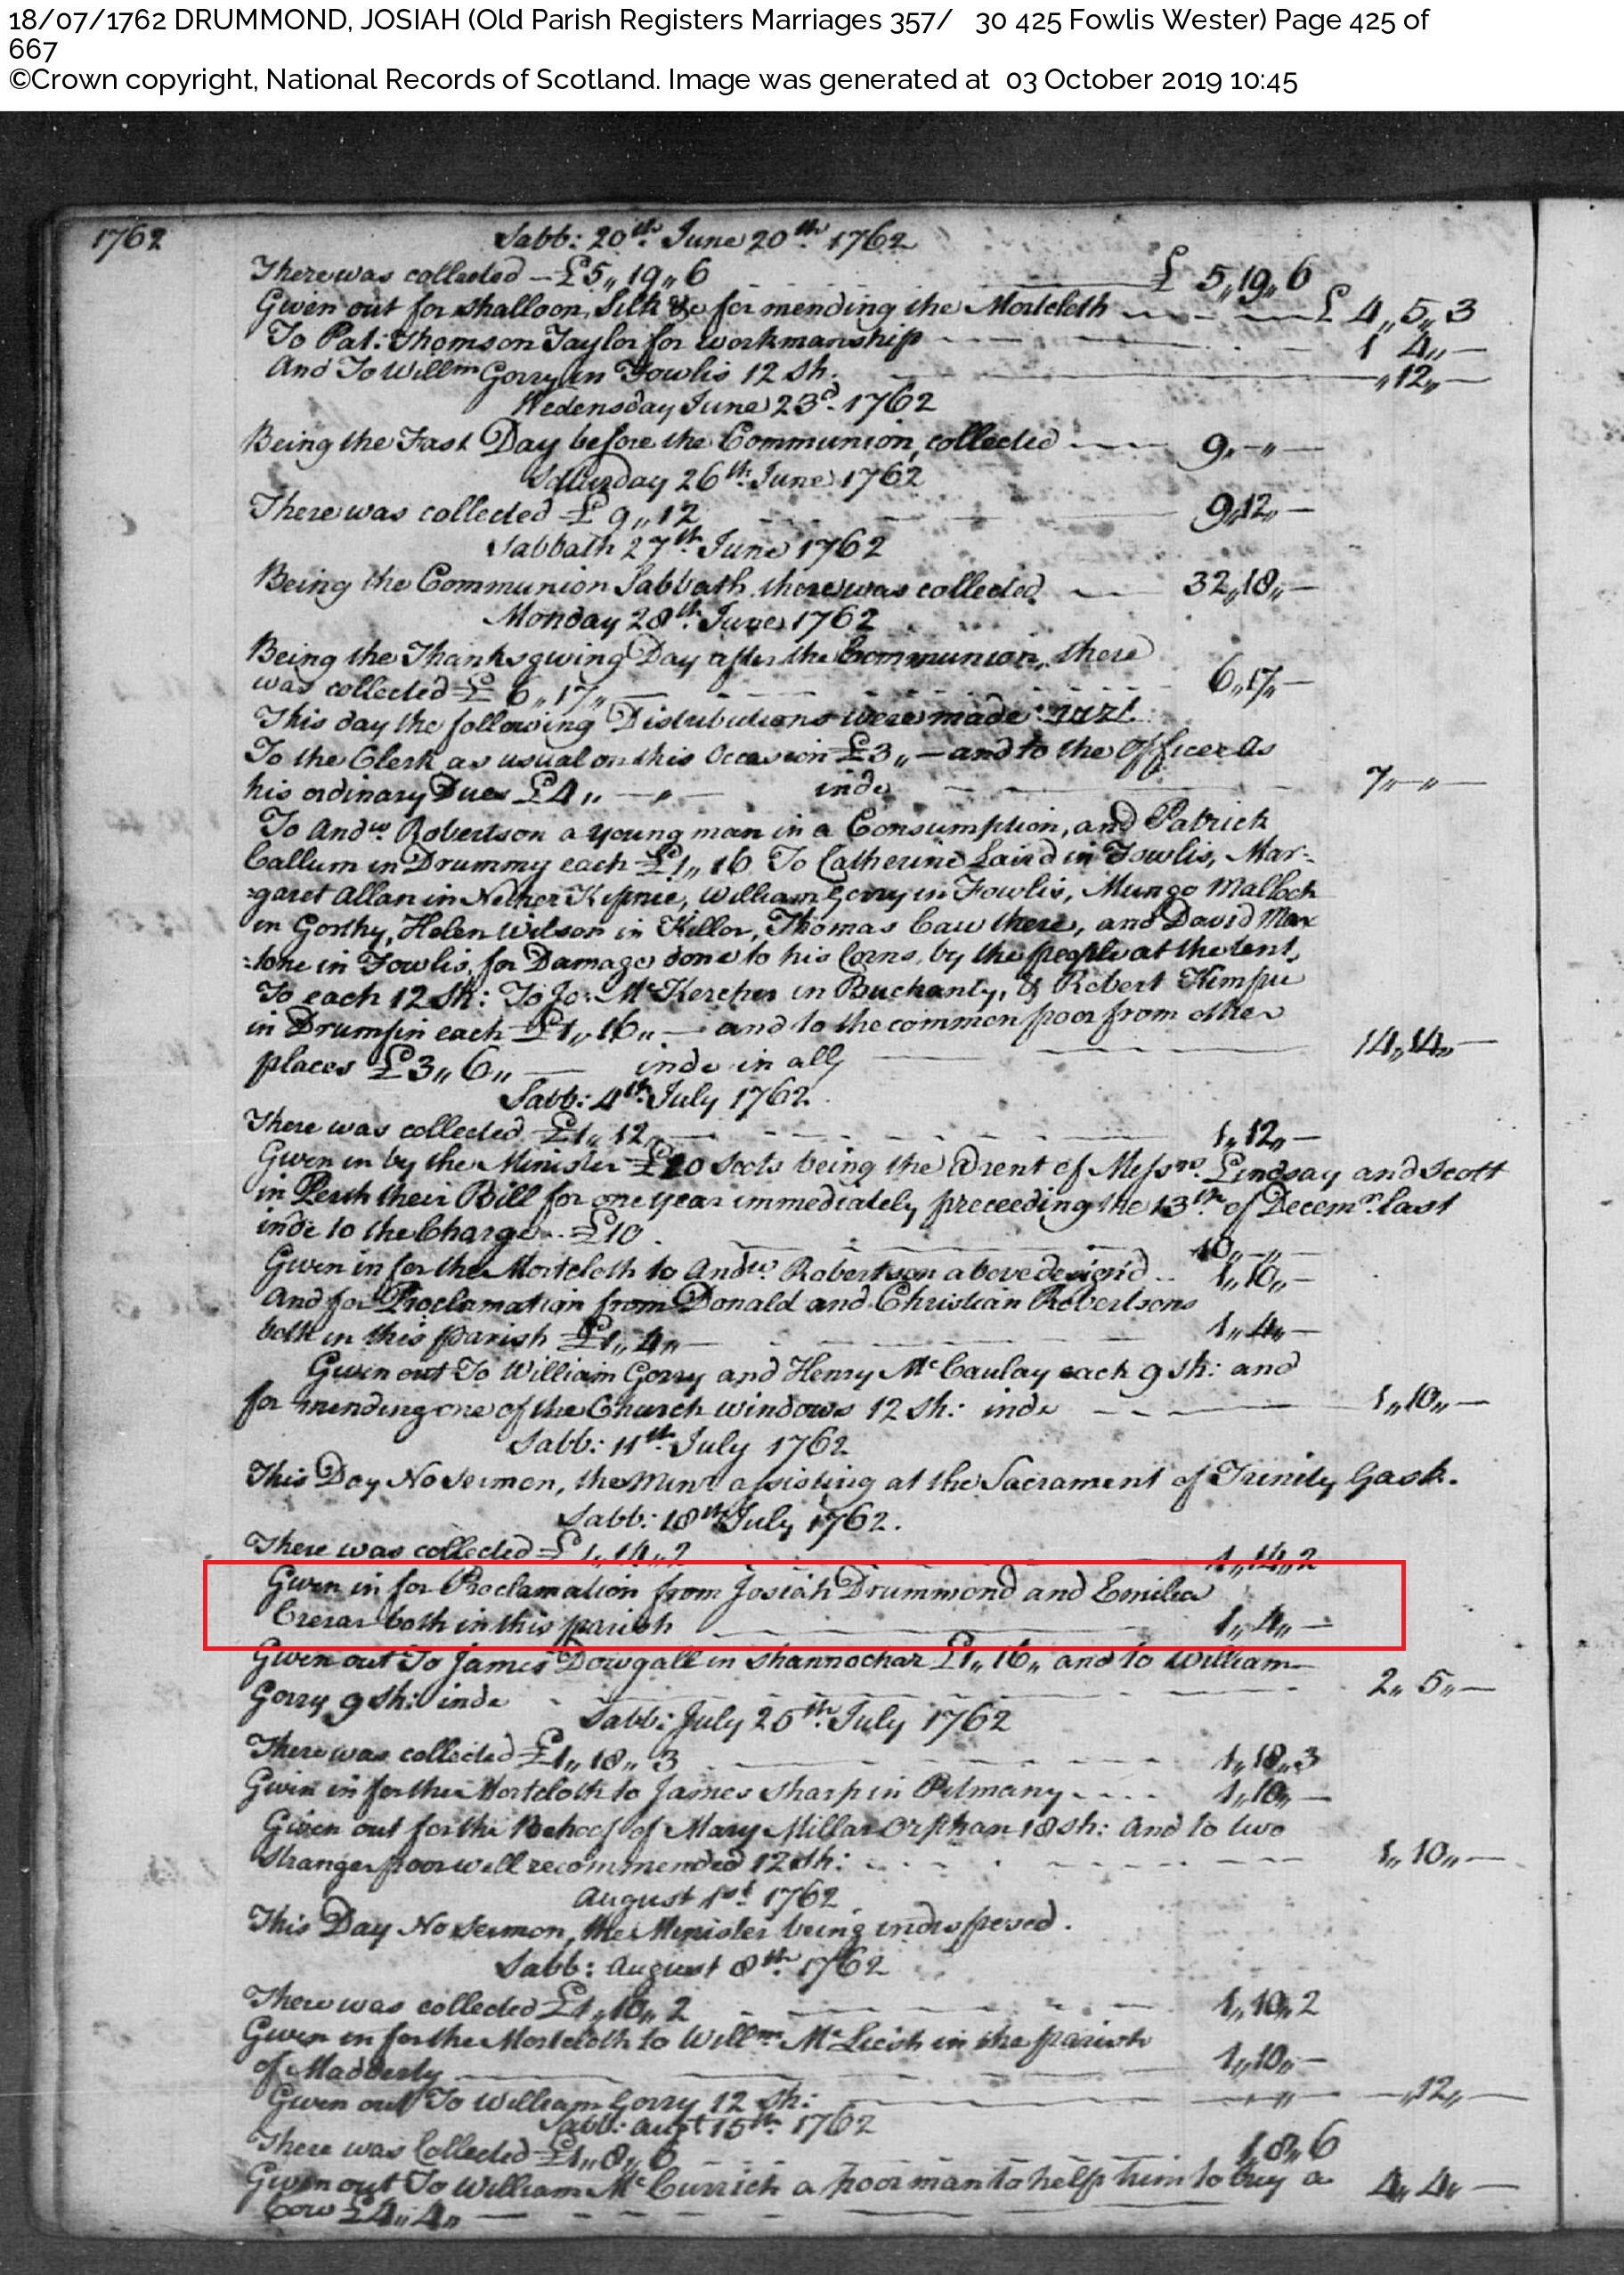 18/07/1762 DRUMMOND, JOSIAH (Old Parish Registers Marriages 357/ 30 425 Fowlis Wester) Page 425 of
667
©Crown copyright, National Records of Scotland. Image was generated at 03 October 2019 10:45
1762
Sabb: 20th June 20th 1762
There was collected — £5,, 19,, 6 £ 5,,19,,6
Given out for shalloon, Silk &c for mending the Mortcloth £ 4,, 5,, 3
To Pat: Thomson Taylor for workmanship 1 4,, —
And To Willm Gorry in Fowlis 12 Sh. ,,12,, —
Wedensday June 23d 1762
Being the Fast Day before the Communion, collected 9,,—,,—
Saturday 26th June 1762
There was collected £ 9,, 12 9,,12,, —
Sabbath 27th June 1762
Being the Communion Sabbath there was collected 32,,18,, —
Monday 28th June 1762
Being the Thanksgiving Day after the Communion, there
was collected £ 6,, 17,, — 6,,17,, —
This day the following Distributions were made vizt.
To the Clerk as usual on this Occasion £3,, — and to the Officer as
his ordinary Dues £4,, —,,— inde 7,,—,,—
To Andw Robertson a young man in a Consumption, and Patrick
Callum in Drummy each £1,, 16 To Catherine Laird in Fowlis, Mar-
-garet Allan in Nether Kipnie, William Gorry in Fowlis, Mungo Malloch
in Gorthy, Helen Wilson in Keillor, Thomas Caw there, and David Max
:tone in Fowlis, for Damage done to his Corns, by the people at the tent,
To each 12 Sh: To Jo: McKercher in Buchanty, & Robert Kimpie
in Drumfin each £1,, 16,, — and to the common poor from other
places £3,, 6,, — inde in all 14,,14,, —
Sabb: 4th July 1762
There was collected £1,, 12,, — 1,,12,, —
Given in by the Minister £10 Scots being the @rent of Messrs. Lindsay and Scott
in Perth their Bill for one year immediately preceeding the 13th of Decemr. last
inde to the Charge £10 10,,—,,—
Given in for the Mortcloth to Andw. Robertson above design'd 1,,10,, —
And for Proclamation from Donald and Christian Robertsons
both in this parish £1,, 4,, — 1,, 4,, —
Given out To William Gorry and Henry McCaulay each 9 sh: and
for mending one of the Church windows 12 sh: inde 1,,10,, —
Sabb: 11th July 1762
This Day No Sermon, the Minr assisting at the Sacrament of Trinity Gask.
Sabb: 18th July 1762.
There was collected £1,,14,,2 1,,14,,2
Given in for Proclamation from Josiah Drummond and Emilia
Crerar both in this parish 1,, 4,, —
Given out To James Dowgall in Shannochar £1,, 16,, and to William
Gorry 9 Sh: inde 2,, 5,, —
Sabb: July 25th July 1762
There was collected £1,, 18,, 3 1,,18,,3
Given in for the Mortcloth to James Sharp in Pitmany 1,,10,, —
Given out for the Behoof of Mary Millar Orphan 18 sh: And to two
stranger poor well recommended 12 sh: 1,, 10,, —
August 1st 1762
This Day No Sermon, the Minister being indisposed.
Sabb: August 8th 1762
There was collected £1,,10,, 2 1,,10,,2
Given in for the Mortcloth to Willm McLeish in the parish
of Madderty 1,,10,, —
Given out To William Gorry 12 sh: —,,12,, —
Sabb: Augt 15th 1762
There was Collected £1,,8,,6 1,,8,,6
Given out To William McCurrich a poor man to help him to buy a
Cow £4,, 4,, — 4,, 4,, —